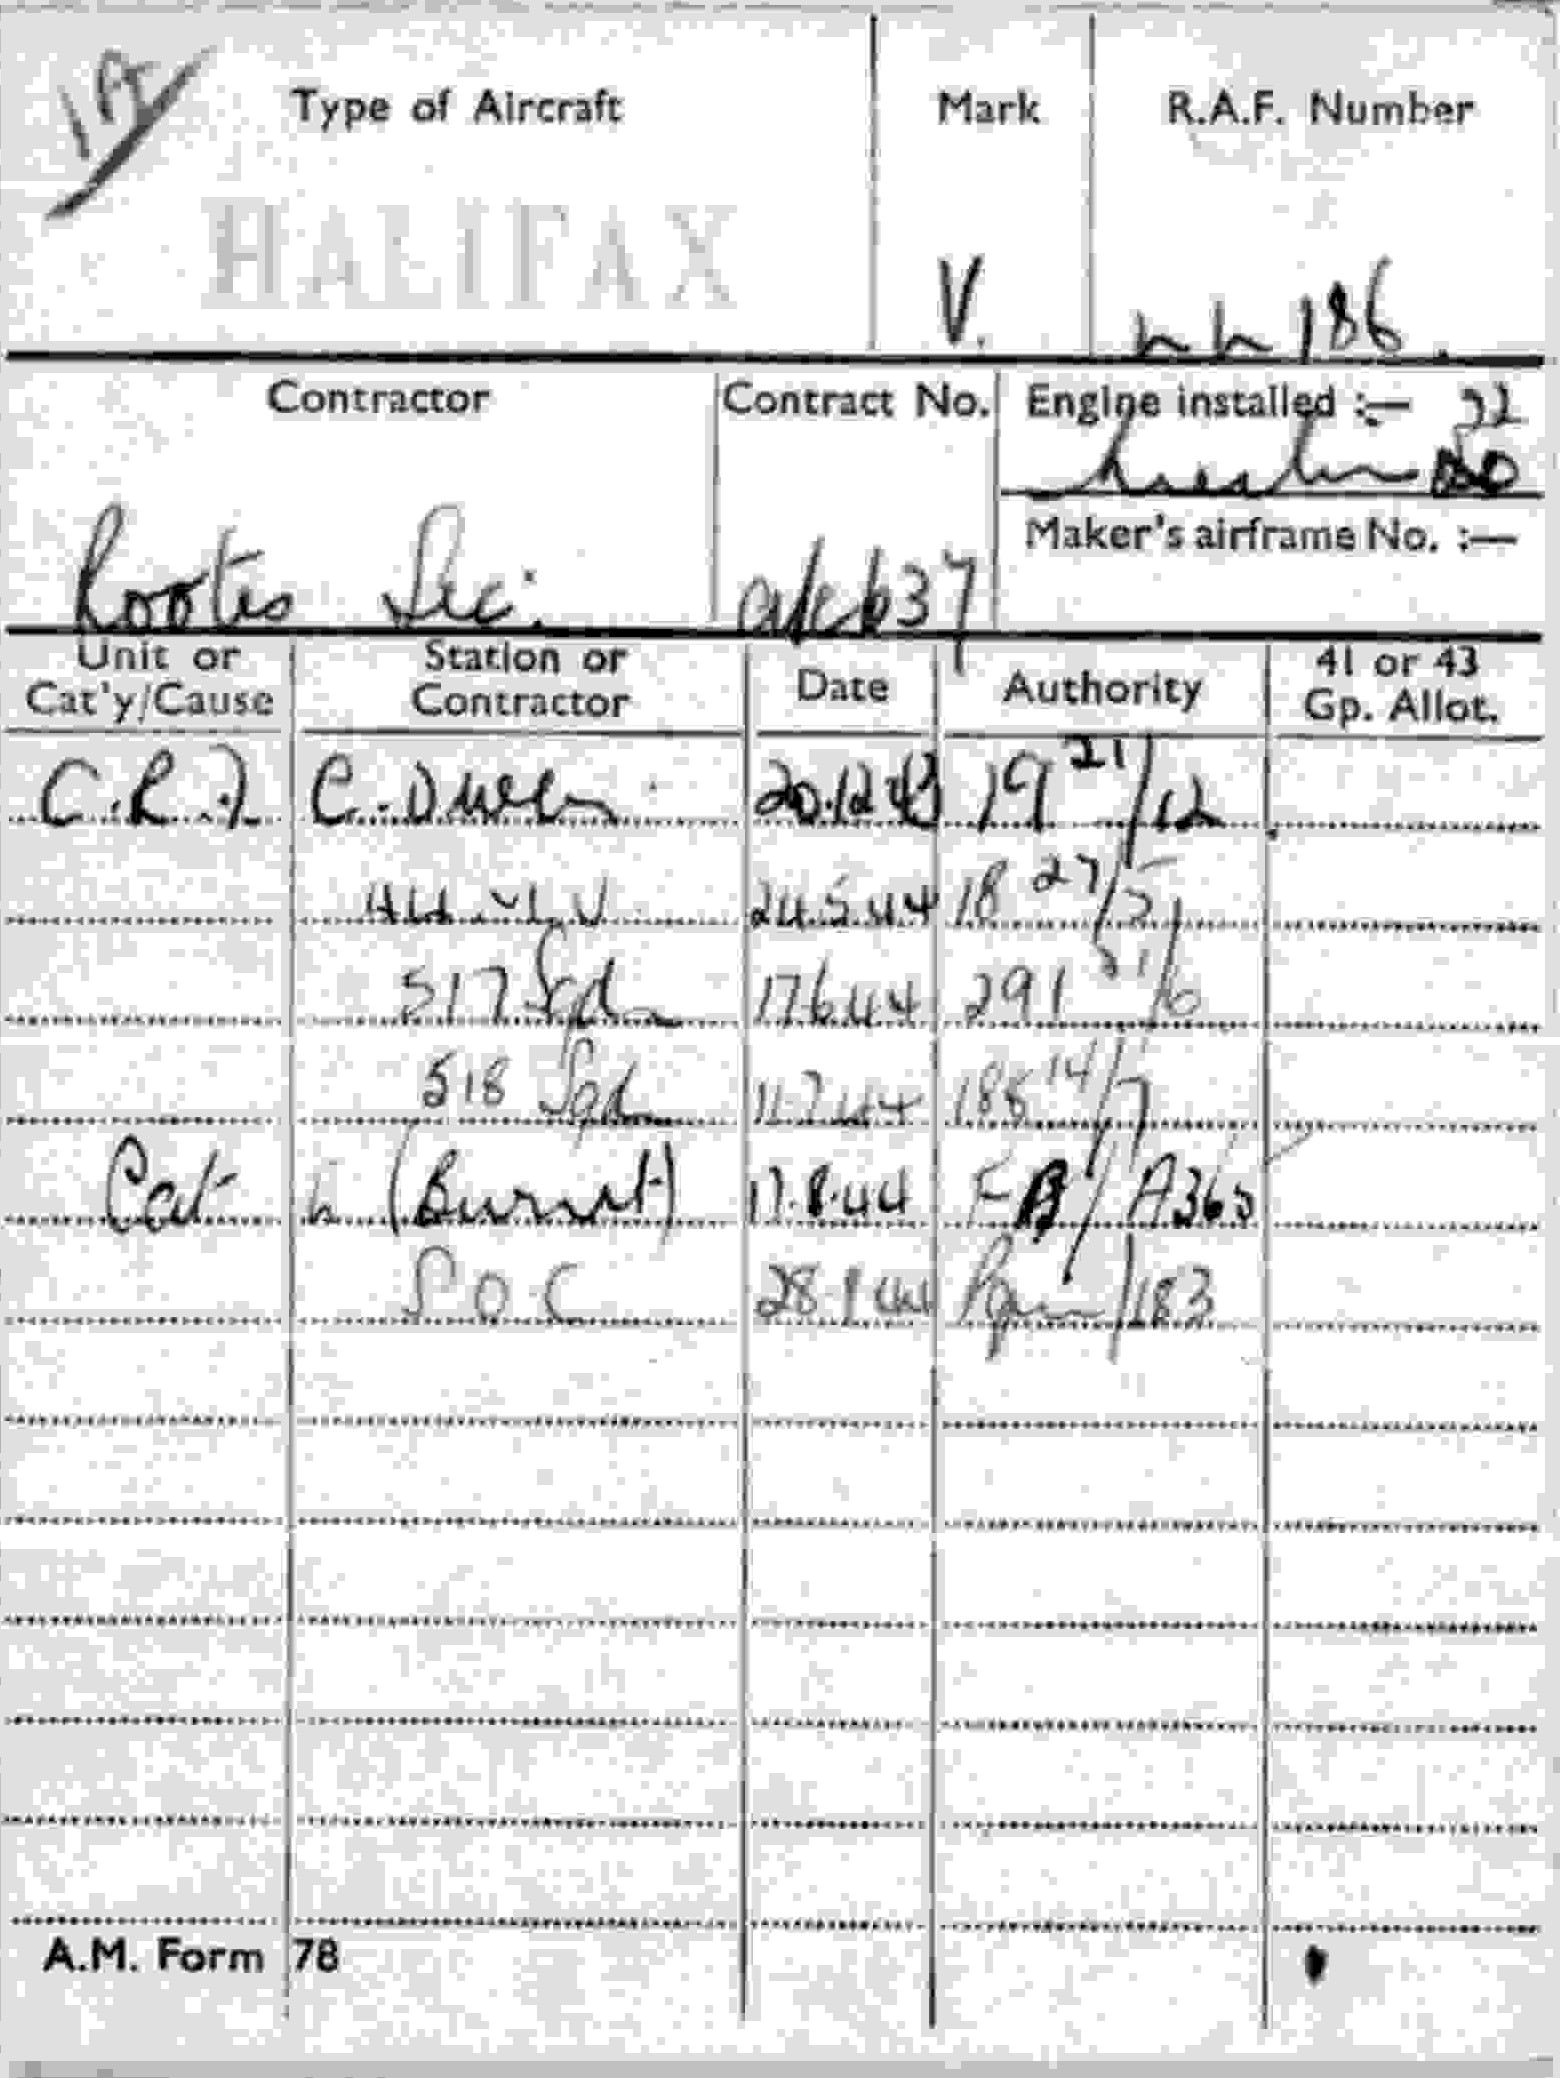 1A
Type of Aircraft Mark R.A.F. Number
HALIFAX V. 186.
Contractor Contract No. Engine installed :— 22
Maker's airframe No. :—
Rootes Sec. 637
Unit or Cat'y/Cause Station or Contractor Date Authority 41 or 43 Gp. Allot.
20.12.43 19 21/12
24.5.44 18 27/5
517 Sqdn 17.6.44 291 /6
518 Sqdn 11.7.44 188 14/7
Cat (Burnt) 17.8.44 FB/A365
S.O.C 28.9.44 /183
A.M. Form 78